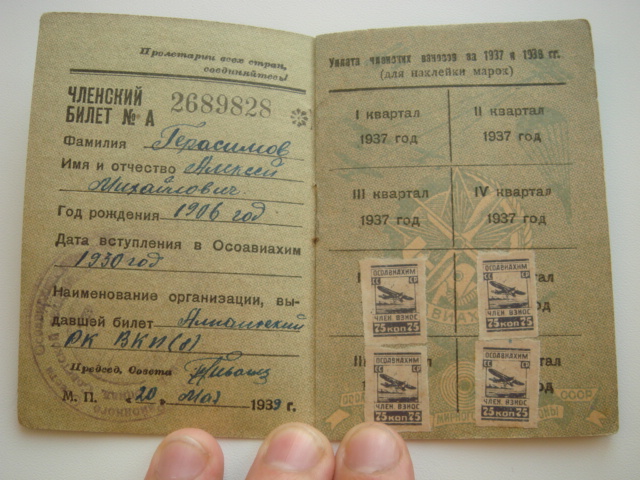 Пролетарии всех стран,
соединяйтесь!
ЧЛЕНСКИЙ
БИЛЕТ № А 2689828
Фамилия Герасимов
Имя и отчество Алексей
Михайлович
Год рождения 1906 год
Дата вступления в Осоавиахим
1930 год
Наименование организации, вы-
давшей билет
РК ВКП(б)
Председ. Совета
М. П. 20 Мая 1939 г.
Уплата членских взносов на 1937 и 1938 гг.
(для наклейки марок)
I квартал
1937 год
II квартал
1937 год
III квартал
1937 год
IV квартал
1937 год
ОСОАВИАХИМ
СС СР
ЧЛЕН ВЗНОС
75 КОП 75
ОСОАВИАХИМ
СС СР
ЧЛЕН ВЗНОС
75 КОП 75
ОСОАВИАХИМ
СС СР
ЧЛЕН ВЗНОС
75 КОП 75
ОСОАВИАХИМ
СС СР
ЧЛЕН ВЗНОС
75 КОП 75
СССР